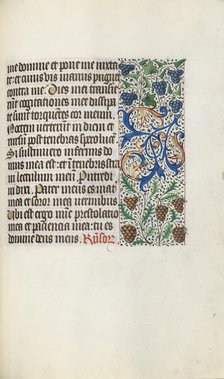 me domine et pone me iuxta
te: et cuiusvis manus pugnet
contra me. Dies mei transie
runt cogitationes mee dissipa
te sunt torquentes cor meum.
Noctem verterunt in diem et
rursum post tenebras spero luce
Si sustinuero infernus do
mus mea est: et in tenebris stra
vi lectulum meum. Putredi
ni dixi. Pater meus es: ma
mea et soror mea vermibus
Ubi est ergo nunc prestolatio
mea et paciencia mea: tu es
domine deus meus. Resp